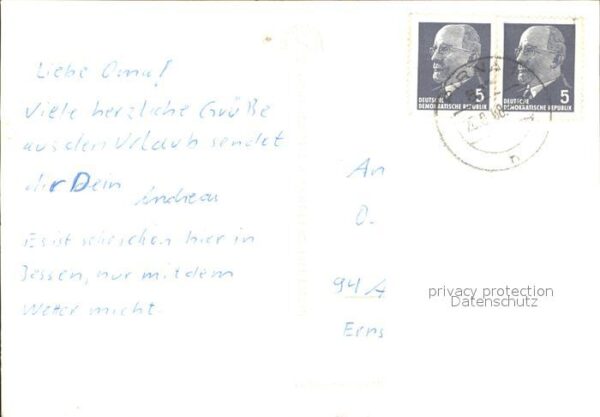 Liebe Oma!
Viele herzliche Grüße
aus dem Urlaub sendet
dir Dein
Andreas
Es ist sehr schön hier in
Jessen, nur mit dem
Wetter nicht.
DEUTSCHE
DEMOKRATISCHE REPUBLIK
5
DEUTSCHE
DEMOKRATISCHE REPUBLIK
5
An
O.
94/4
Erns
privacy protection
Datenschutz